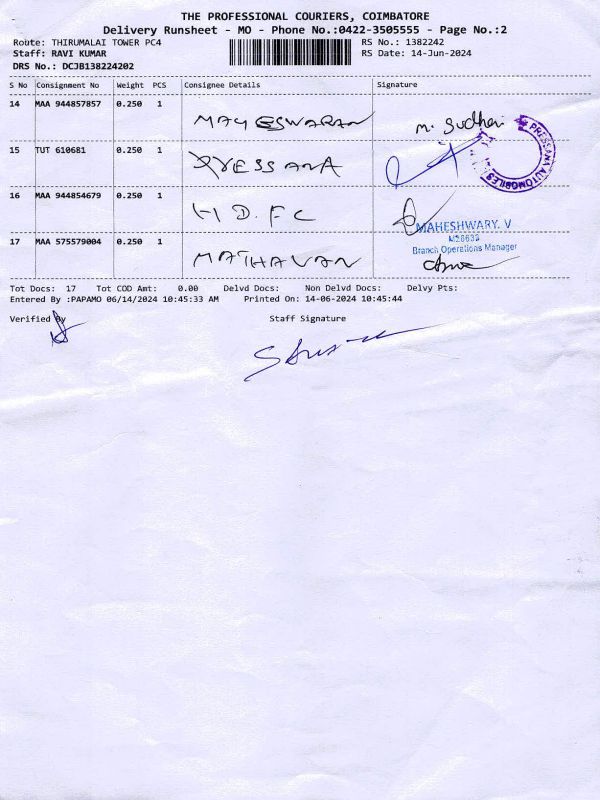 THE PROFESSIONAL COURIERS, COIMBATORE
Delivery Runsheet - MO - Phone No.:0422-3505555 - Page No.:2
Route: THIRUMALAI TOWER PC4 RS No.: 1382242
Staff: RAVI KUMAR RS Date: 14-Jun-2024
DRS No.: DCJB138224202
S No Consignment No Weight PCS Consignee Details Signature
14 MAA 944857857 0.250 1 MAHESWARAN M. Sudha
15 TUT 610681 0.250 1
PRESSANA AUTOMOBILES
16 MAA 944854679 0.250 1 HDFC
MAHESHWARY. V
Branch Operations Manager
17 MAA 575579004 0.250 1 MATHAVAN
Tot Docs: 17 Tot COD Amt: 0.00 Delvd Docs: Non Delvd Docs: Delvy Pts:
Entered By :PAPAMO 06/14/2024 10:45:33 AM Printed On: 14-06-2024 10:45:44
Verified By Staff Signature